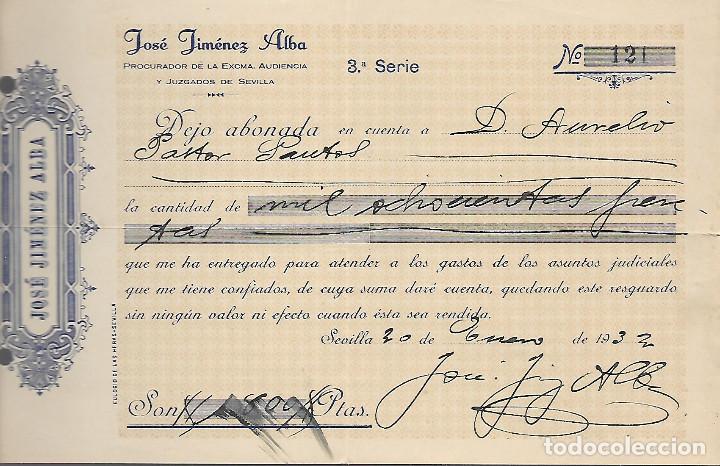 José Jiménez Alba
PROCURADOR DE LA EXCMA. AUDIENCIA
Y JUZGADOS DE SEVILLA
3.ª Serie
No 121
JOSÉ JIMÉNEZ ALBA
Dejo abonada en cuenta a D. Aurelio
Pastor Santos
la cantidad de mil ochocientas pese
tas
que me ha entregado para atender a los gastos de los asuntos judiciales
que me tiene confiados, de cuya suma daré cuenta, quedando este resguardo
sin ningún valor ni efecto cuando ésta sea rendida.
Sevilla 20 de Enero de 1932
José Jiz Alba
Son Ptas.
EULOGIO DE LAS HERAS-SEVILLA
todocoleccion
todocoleccion.net